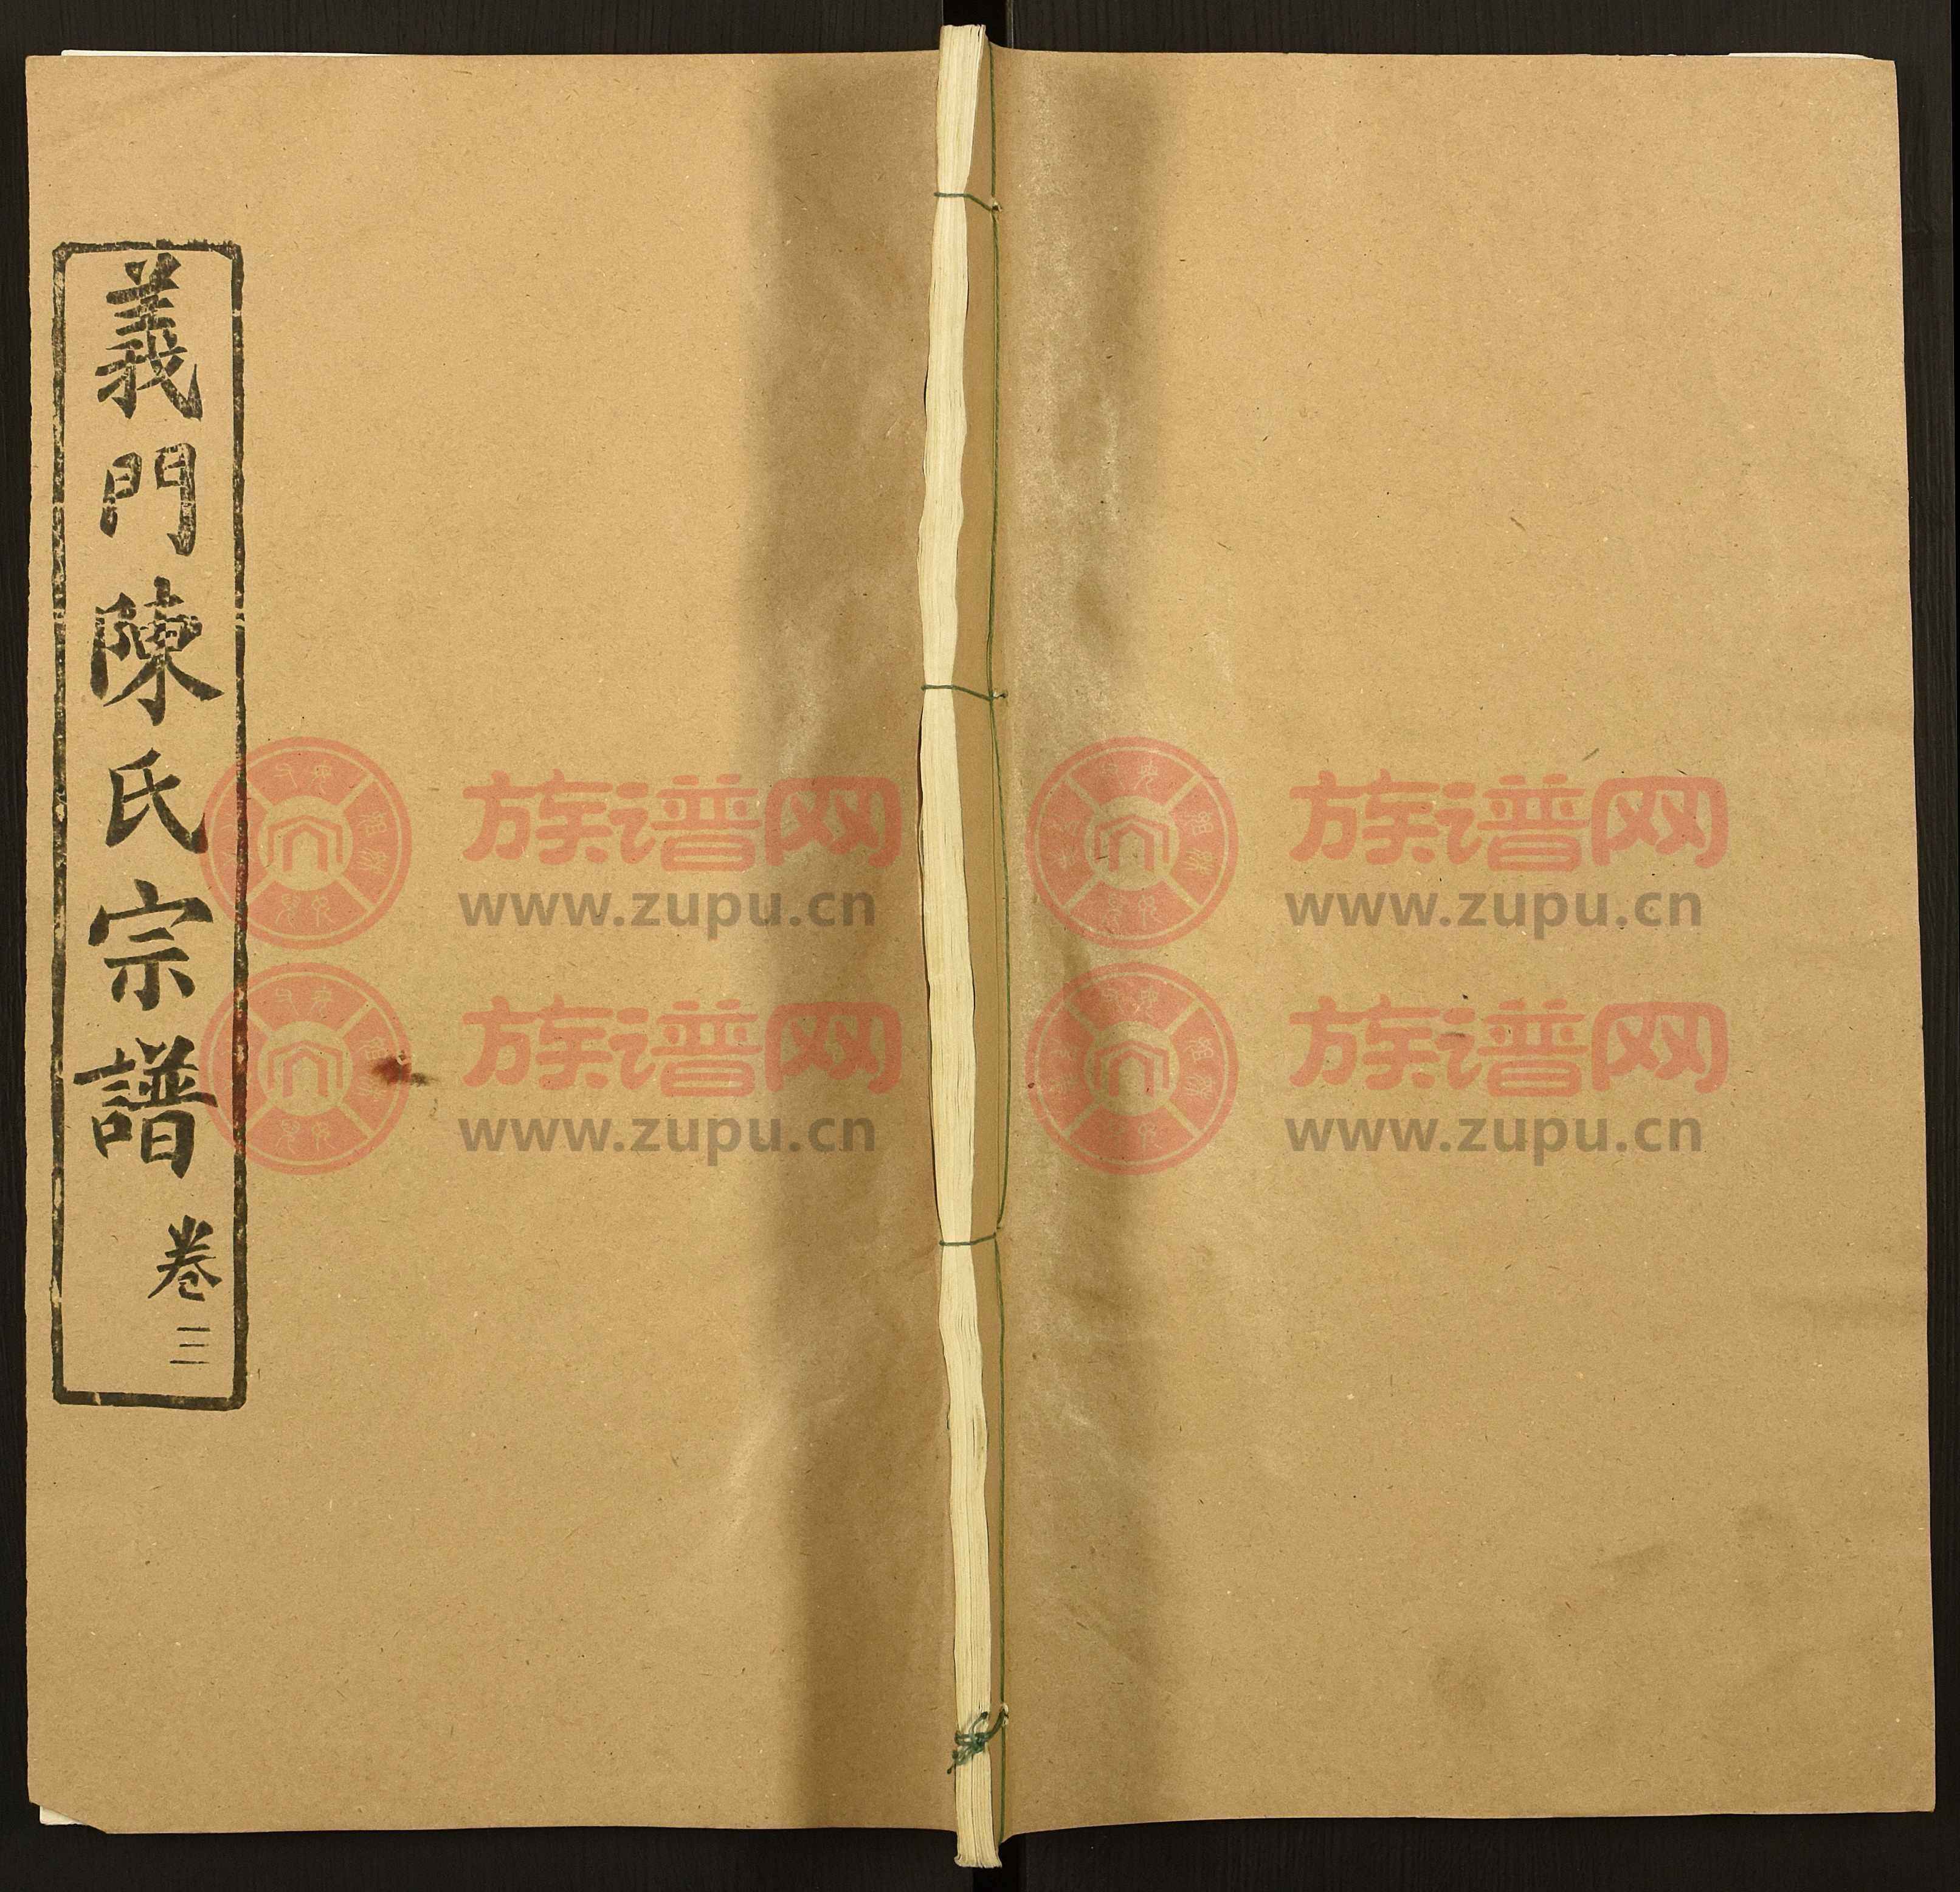 義門陳氏宗譜
卷三
族谱网 族谱网
www.zupu.cn www.zupu.cn
族谱网 族谱网
www.zupu.cn www.zupu.cn